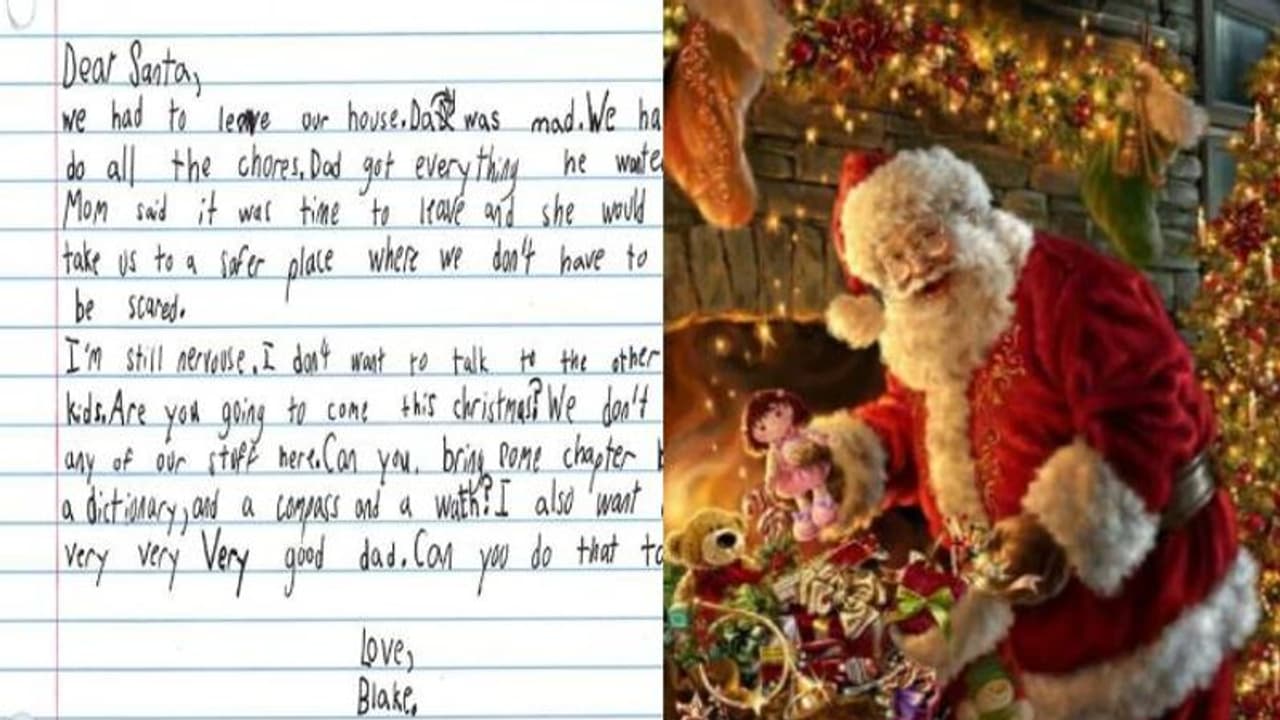 Dear Santa,
we had to leave our house. Dad was mad. We ha
do all the chores. Dad got everything he wante
Mom said it was time to leave and she would
take us to a safer place where we don't have to
be scared.
I'm still nervouse. I don't want to talk to the other
kids. Are you going to come this christmas? We don't
any of our stuff here. Can you bring some chapter b
a dictionary, and a compass and a wath? I also want
very very very good dad. Can you do that to
Love,
Blake.